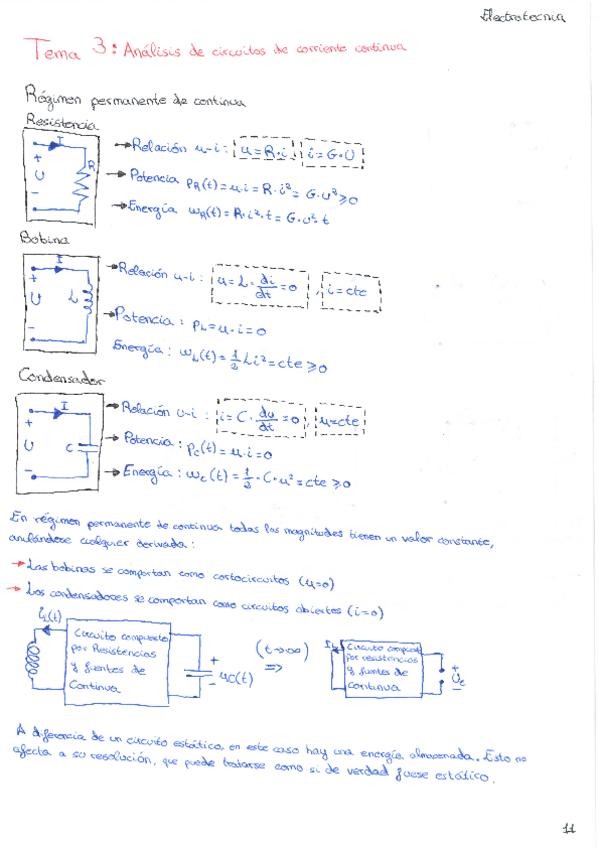 Electrotecnia
Tema 3: Análisis de circuitos de corriente continua
Régimen permanente de continua
Resistencia
I
+
U
−
R
→Relación u-i: u=R·i, i=G·U
→Potencia pR(t)=u·i=R·i²=G·u²≥0
→Energía wR(t)=R·i²·t=G·u²·t
Bobina
I
+
U
−
L
→Relación u-i: u=L·di/dt=0, i=cte
→Potencia: pL=u·i=0
Energía: wL(t)=1/2 Li²=cte≥0
Condensador
I
+
U
−
C
→Relación u-i: i=C·du/dt=0, u=cte
→Potencia: pc(t)=u·i=0
→Energía: wc(t)=1/2·C·u²=cte≥0
En régimen permanente de continua todas las magnitudes tienen un valor constante,
anulándose cualquier derivada:
→Las bobinas se comportan como cortocircuitos (u=0)
→Los condensadores se comportan como circuitos abiertos (i=0)
iL(t)
Circuito compuesto
por Resistencias
y fuentes de
Continua
+
−
uC(t)
(t→∞)
⇒
IL
Circuito compuest
por resistencias
y fuentes de
Continua
+
Uc
−
A diferencia de un circuito estático, en este caso hay una energía almacenada. Esto no
afecta a su resolución, que puede tratarse como si de verdad fuese estático.
11